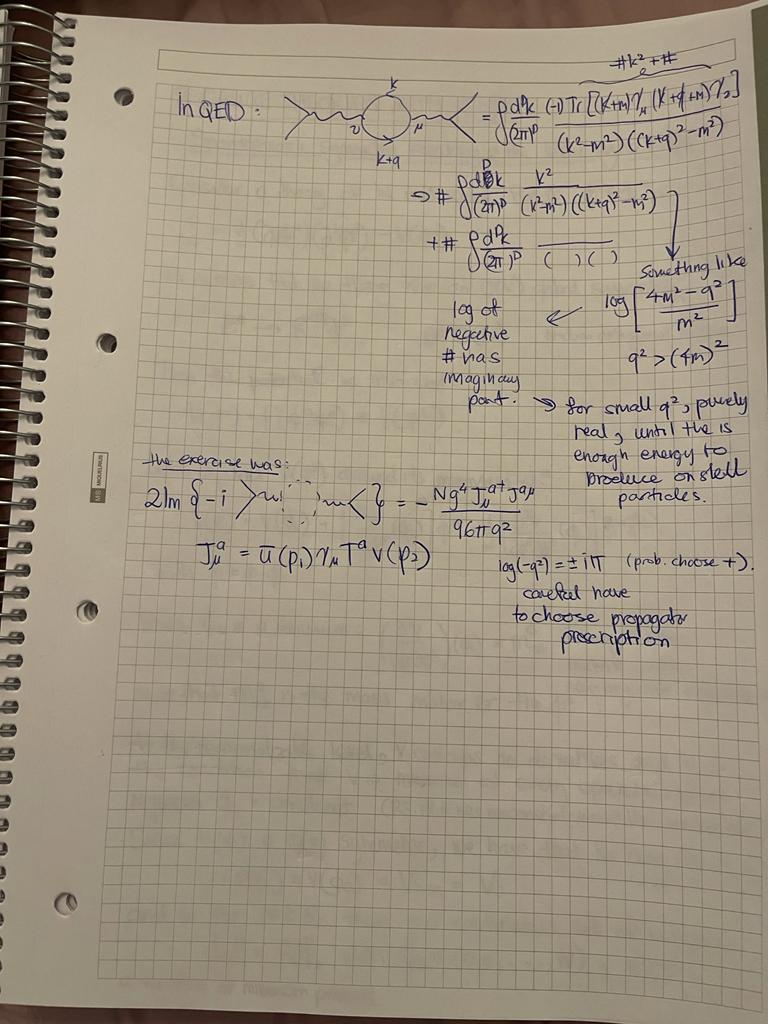 #k² + #
In QED : k ν μ k+q = ∫ dᴰk/(2π)ᴰ (-1) Tr[(k̸+m)γ_μ(k̸+q̸+m)γ_ν] / (k²-m²)((k+q)²-m²)
→ # ∫ dᴰk/(2π)ᴰ k²/(k²-m²)((k+q)²-m²)
+ # ∫ dᴰk/(2π)ᴰ ―/( )( )
Something like
log [ (4m² - q²)/m² ]
q² > (4m)²
←
log of
negative
# has
imaginary
part.
→ for small q², purely
real, until the is
enough energy to
produce on shell
particles.
the exercise was:
2Im { -i } = - N g⁴ J_μ^{a†} J^{aμ} / 96πq²
J_μ^a = ū(p₁) γ_μ T^a v(p₂)
log(-q²) = ± iπ (prob. choose +).
careful have
to choose propagator
prescription
MIQUELRIUS